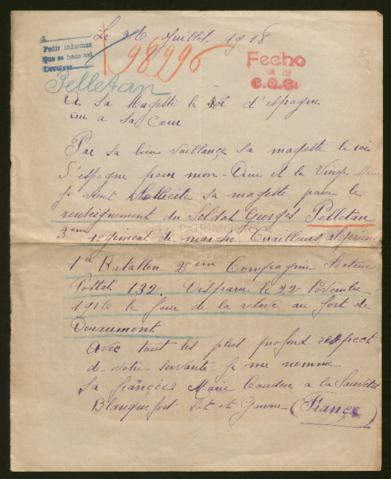 Le 26 Juillet 1918
Pedir informes
Que se haga así
98996
Fecho
e.a.e.
Pelletan
A sa Magesté le Roi d'espagne
en a sa Cour
Par sa bien vaillance sa mageste le roi
d'espagne pour mon Dieu et la Vierge
je vient sa mageste pour le
renseignement du Soldat Georges Pelletan
3ème regiment de marche Tirailleurs algeriens
1er Batallon 25ème Compagnie Secteur
Postal 132. Disparu le 22 Novembre
1916 le jour de la releve au fort de
Douaumont
Avec tout les plus profond respect
de votre servante je me nomme
Sa fiançées Marie a la Sauvetat
Blanquefort Lot et Garonne (France)